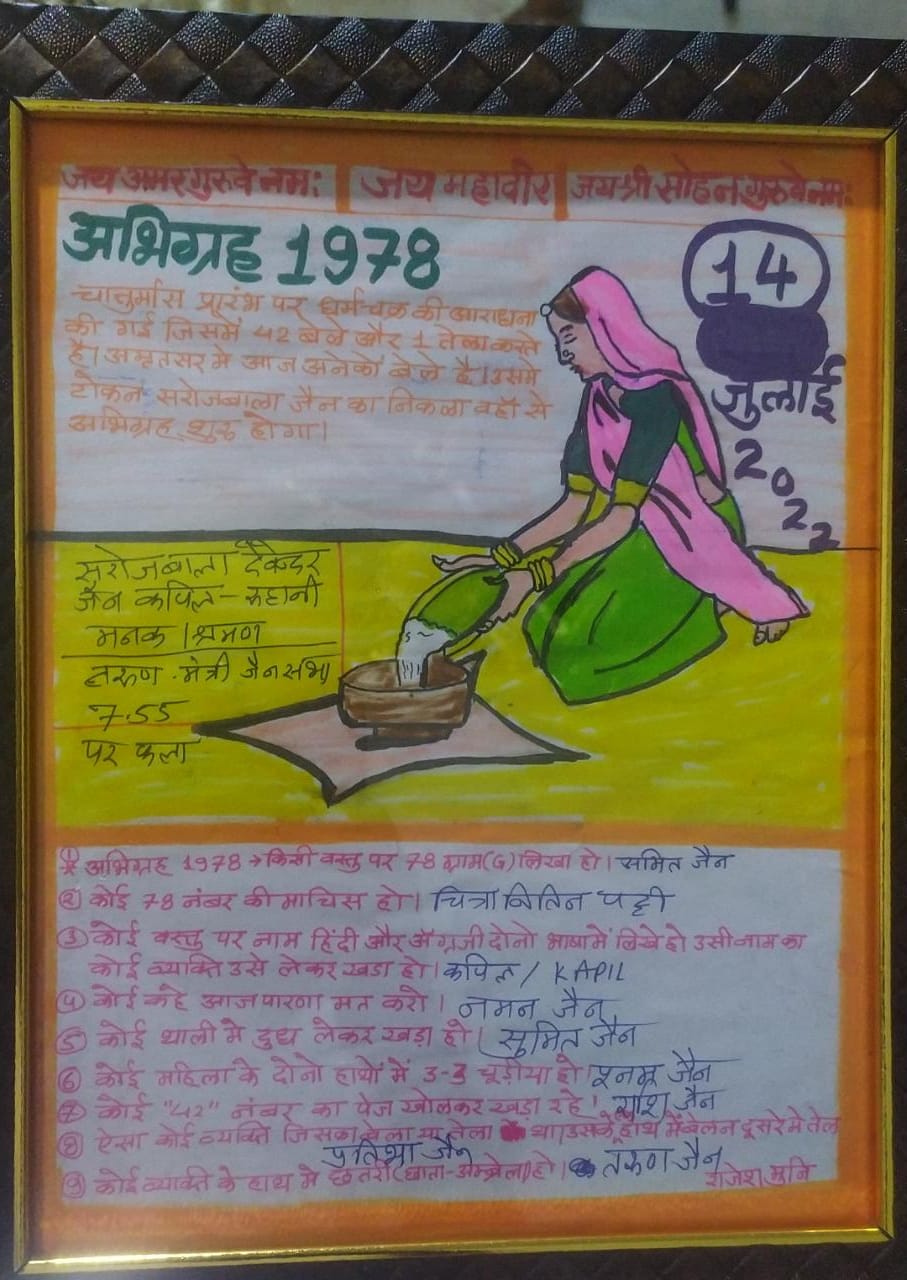 जय अमर गुरुवे नमः | जय महावीर | जय श्री सोहन गुरुवे नमः
अभिग्रह 1978
14
जुलाई
2022
चार्तुमास प्रारंभ पर धर्मचक्र की आराधना
की गई जिसमें 42 बेले और 1 तेला करते
है। अमृतसर मे आज अनेकों बेले है। उसमे
टोकन सरोजबाला जैन का निकला वहाँ से
अभिग्रह शुरु होगा।
सरोजबाला देवेन्दर
जैन कपिल - रुहानी
मनक । श्रमण
तरुण मैत्री जैन सभा
7.55
पर फला
① अभिग्रह 1978 → किसी वस्तु पर 78 ग्राम (G) लिखा हो। समित जैन
② कोई 78 नंबर की माचिस हो। चित्रा नितिन पट्टी
③ कोई वस्तु पर नाम हिंदी और अंग्रजी दोनो भाषा में लिखे हो उसी नाम का
कोई व्यक्ति उसे लेकर खडा हो। कपिल / KAPIL
④ कोई कहे आज पारणा मत करो। नमन जैन
⑤ कोई थाली मे दुध लेकर खडा हो। सुमित जैन
⑥ कोई महिला के दोनो हाथों में 3-3 चूड़ीया हो। पूनम जैन
⑦ कोई "42" नंबर का पेज खोलकर खडा रहे। राशि जैन
⑧ ऐसा कोई व्यक्ति जिसका बेला या तेला था। उसके हाथ में बेलन दूसरे मे तेल
प्रतिभा जैन
⑨ कोई व्यक्ति के हाथ मे छतरी (छाता-अम्ब्रेला) हो। तरुण जैन
राजेश मुनि